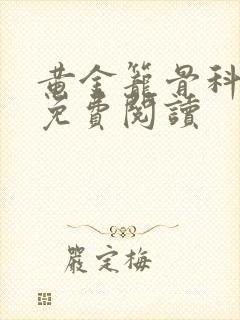 黃金籠骨科
免費閱讀
嚴定梅